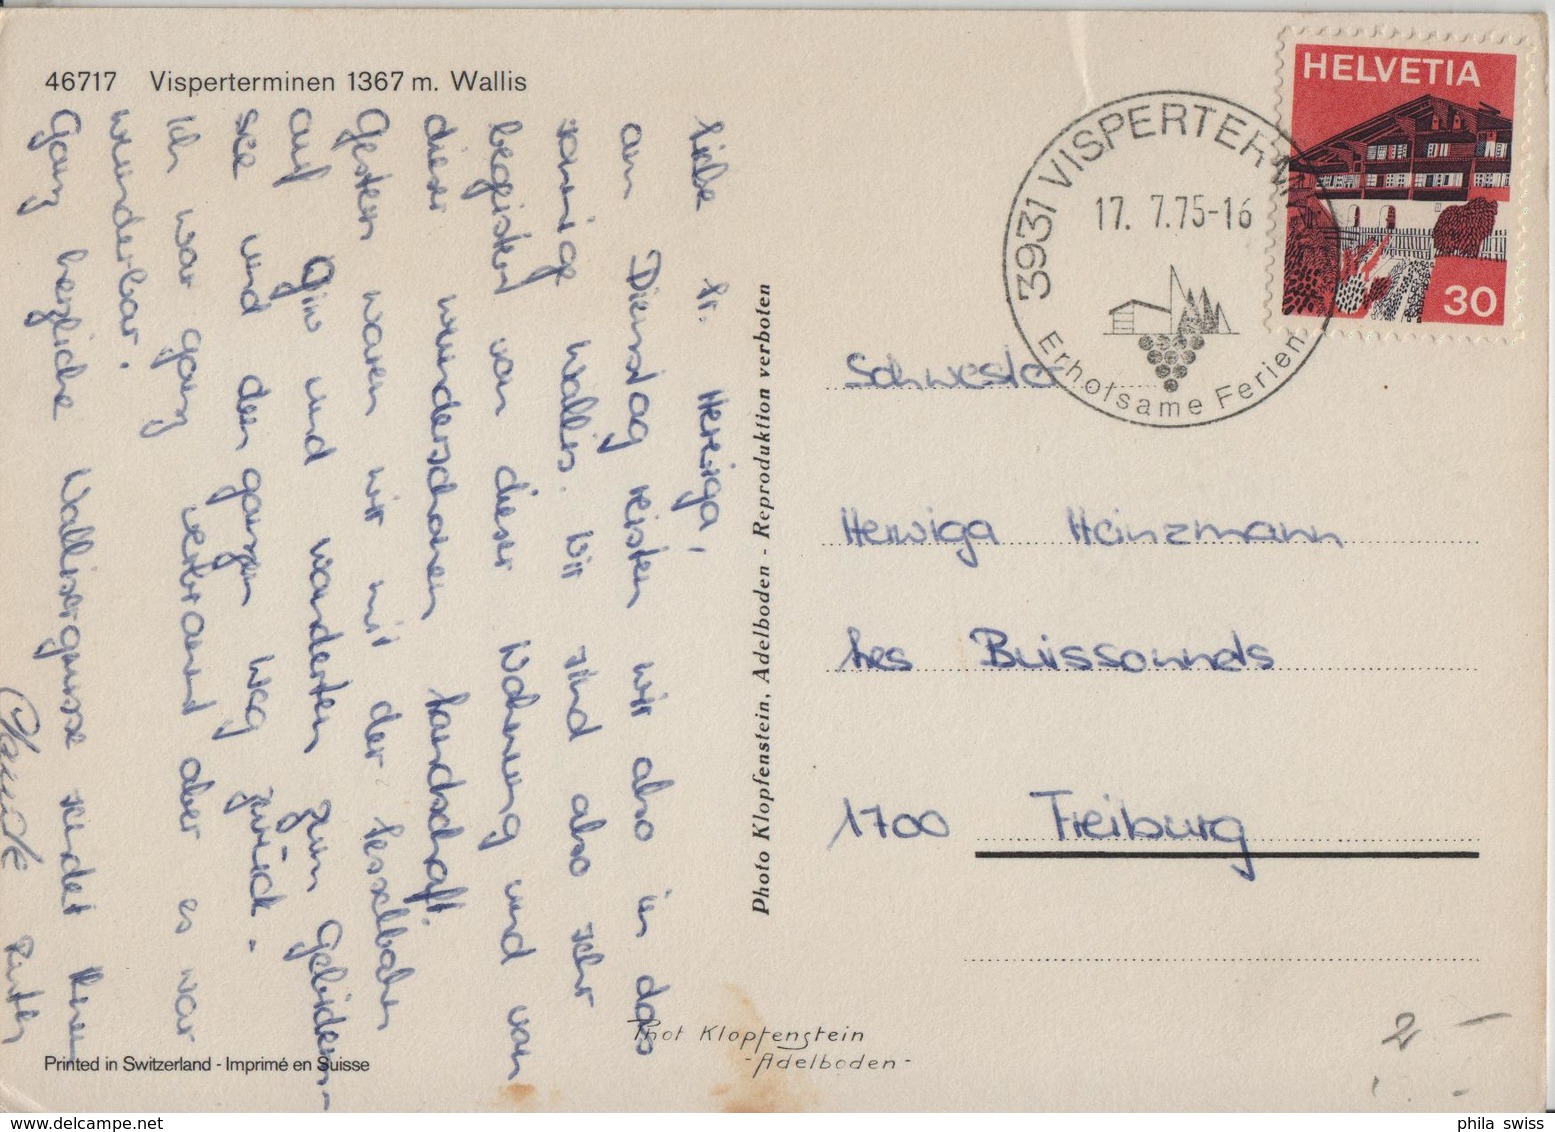 46717 Visperterminen 1367 m. Wallis
Liebe Sr. Herwiga,
am Dienstag reisten wir also in das
sonnige Wallis. Wir sind also sehr
begeistert von dieser Wohnung und von
dieser wunderschönen Landschaft.
Gestern waren wir mit der Sesselbahn
auf Giw und wanderten zum Gebidem-
see und den ganzen Weg zurück.
Ich war ganz verbrannt aber es war
wunderbar!
Ganz herzliche Wallisergrüsse sendet Ihnen
Photo Klopfenstein, Adelboden - Reproduktion verboten
HELVETIA
30
3931 VISPERTERMINEN
17. 7.75-16
Erholsame Ferien
Schwester
Herwiga Heinzmann
Les Buissonnets
1700 Freiburg
Phot Klopfenstein
-Adelboden-
Printed in Switzerland - Imprimé en Suisse
2 -
phila swiss